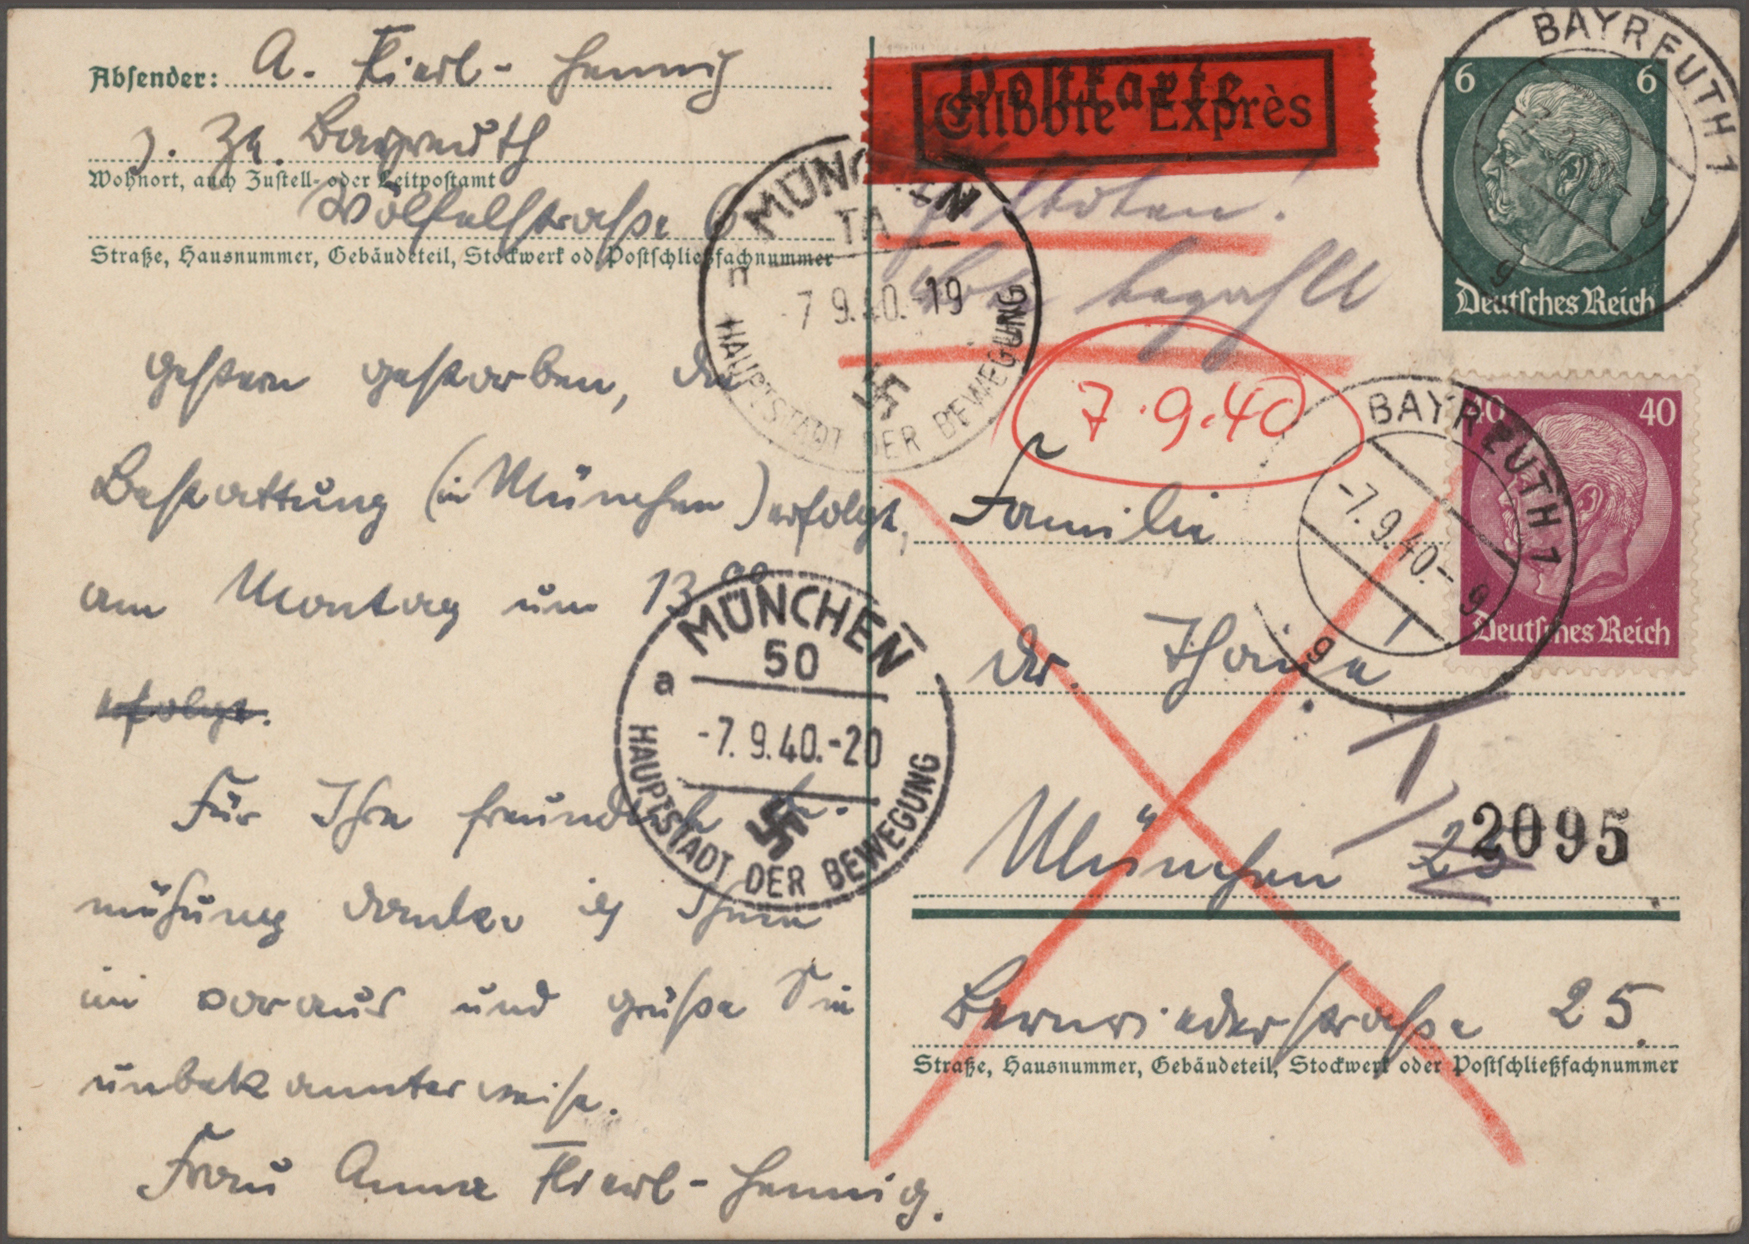 Absender: A. Flierl-Hennig
z. Zt. Bayreuth
Wohnort, auch Zustell- oder Leitpostamt
Wölfelstraße 6
Straße, Hausnummer, Gebäudeteil, Stockwerk od. Postschließfachnummer
gestern gestorben, die
Bestattung (in München) erfolgt,
am Montag um 13 00
erfolgt.
Für Ihre freundl. Be-
mühung danke ich Ihnen
im voraus und grüße Sie
unbekannterweise.
Frau Anna Flierl-Hennig.
Postkarte
Eilbote Exprès
Eilboten!
Bote bezahlt
7.9.40
Familie
Dr.
München 25
2095
Bernriederstraße 25.
Straße, Hausnummer, Gebäudeteil, Stockwerk oder Postschließfachnummer
6 6
Deutsches Reich
BAYREUTH 1
g
40 40
Deutsches Reich
BAYREUTH 1
-7.9.40.- 9
g
MÜNCHEN
TA
n
7 9.40.-19
HAUPTSTADT DER BEWEGUNG
MÜNCHEN
50
a
-7.9.40.-20
HAUPTSTADT DER BEWEGUNG